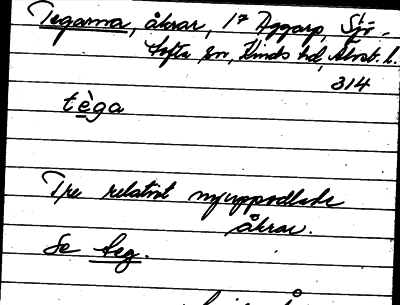 Tegarna, åkrar, 1⁷ Aggarp, Sjö-
tofta sn, Kinds hd, Älvsb. l.
314
tèga
Tre relativt nyuppodlade
åkrar.
Se teg.